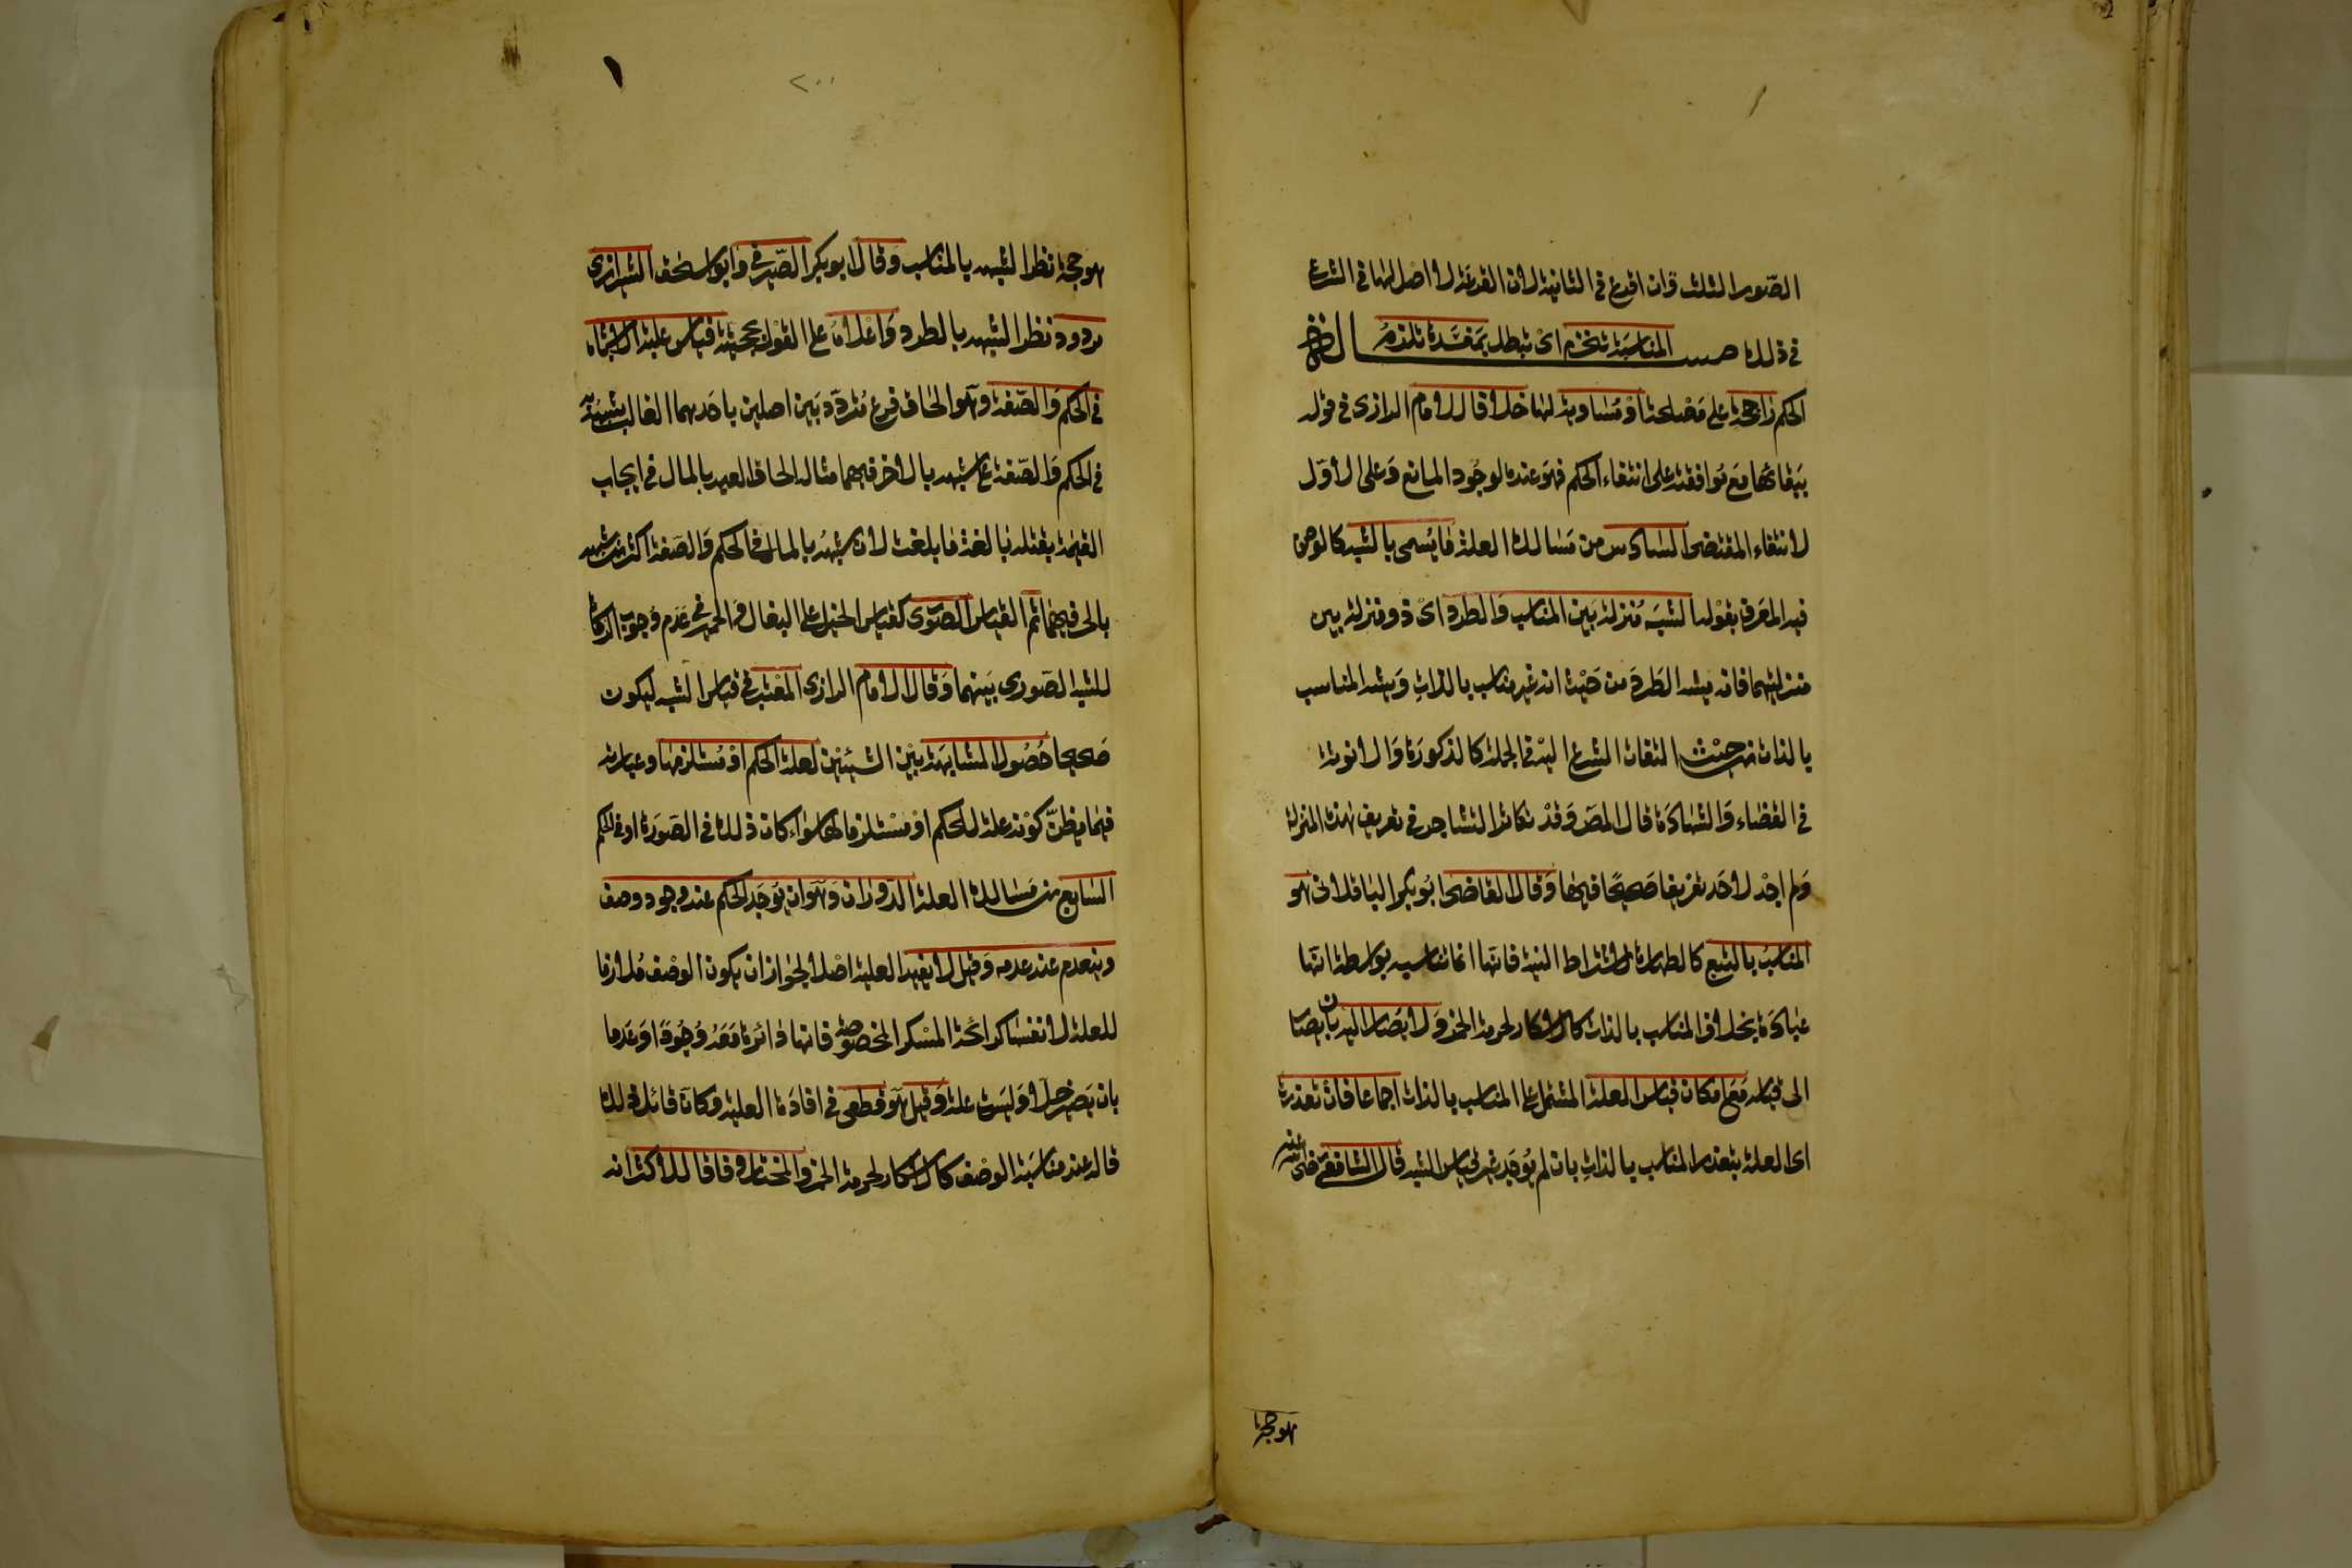 الصّور الثلث وان اقرع في الثانية لان القرعة لا اصل لها في الشرع
في ذلك مسالة المناسبة تنخرم اى تبطل بمفسدة تلزم
الحكم راجحة على مصلحتها او مساوية لها خلافا للامام الرازى في قوله
ببقائها مع موافقته على انتفاء الحكم فهو عنده لوجود المانع وعلى الاوّل
لانتفاء المقتضى السادس من مسالك العلة ما يسمى بالشبه كالوصف
فيه المعرف بقوله الشبه منزلة بين المناسب والطرد اى ذو منزلة بين
منزلتيهما فانه يشبه الطرد من حيث انه غير مناسب بالذات ويشبه المناسب
بالذات من حيث التفات الشرع اليه في الجملة كالذكورة والانوثة
في القضاء والشهادة قال المص وقد تكاثر التشاجر في تعريف هذه المنزلة
ولم اجد لاحد تعريفا صحيحا فيها وقال القاضى ابو بكر الباقلانى هو
المناسب بالتبع كالطهارة لاشتراط النية فانها انما تناسبه بواسطة انها
عبادة بخلاف المناسب بالذات كالاسكار لحرمة الخمر ولا يصار اليه بان يصار
الى قياسه مع امكان قياس العلة المشتمل على المناسب بالذات اجماعا فان تعذرت
اى العلة بتعذر المناسب بالذات بان لم يوجد غير قياس الشبه قال الشافعى رضى الله عنه
هو حجة
٢٠٠
هو حجة نظرا لشبهه بالمناسب وقال ابو بكر الصّيرفي وابو اسحق الشيرازى
مردود نظرا لشبهه بالطرد واعلاه على القول بحجيته قياس غلبة الاشباه
في الحكم والصّفة وهو الحاق فرع متردّد بين اصلين باحدهما الغالب شبهه به
في الحكم والصّفة على شبهه بالاخر فيهما مثاله الحاق العبد بالمال في ايجاب
القيمة بقتله بالغة ما بلغت لان شبهه بالمال في الحكم والصّفة اكثر من شبهه
بالحر فيهما ثم القياس الصّورى كقياس الخيل على البغال والحمير في عدم وجوب الزكاة
للشبه الصّورى بينهما وقال الامام الرازى المعتبر في قياس الشبه ليكون
صحيحا حصول المشابهة بين الشيئين لعلة الحكم او مستلزمها وعبارته
فيما يظنّ كونه علة للحكم او مستلزما لها سواء كان ذلك في الصّورة او في الحكم
السابع من مسالك العلة الدّوران وهو ان يوجد الحكم عند وجود وصف
وينعدم عند عدمه وقيل لا يفيد العلية اصلا لجواز ان يكون الوصف ملازما
للعلة لا نفسها كرائحة المسكر المخصوصة فانها دائرة معه وجودا وعدما
بان يصير خلا وليست علة وقيل هو قطعى في افادة العلية وكان قائل ذلك
قاله عند مناسبة الوصف كالاسكار لحرمة الخمر والمختار وفاقا للاكثر انه